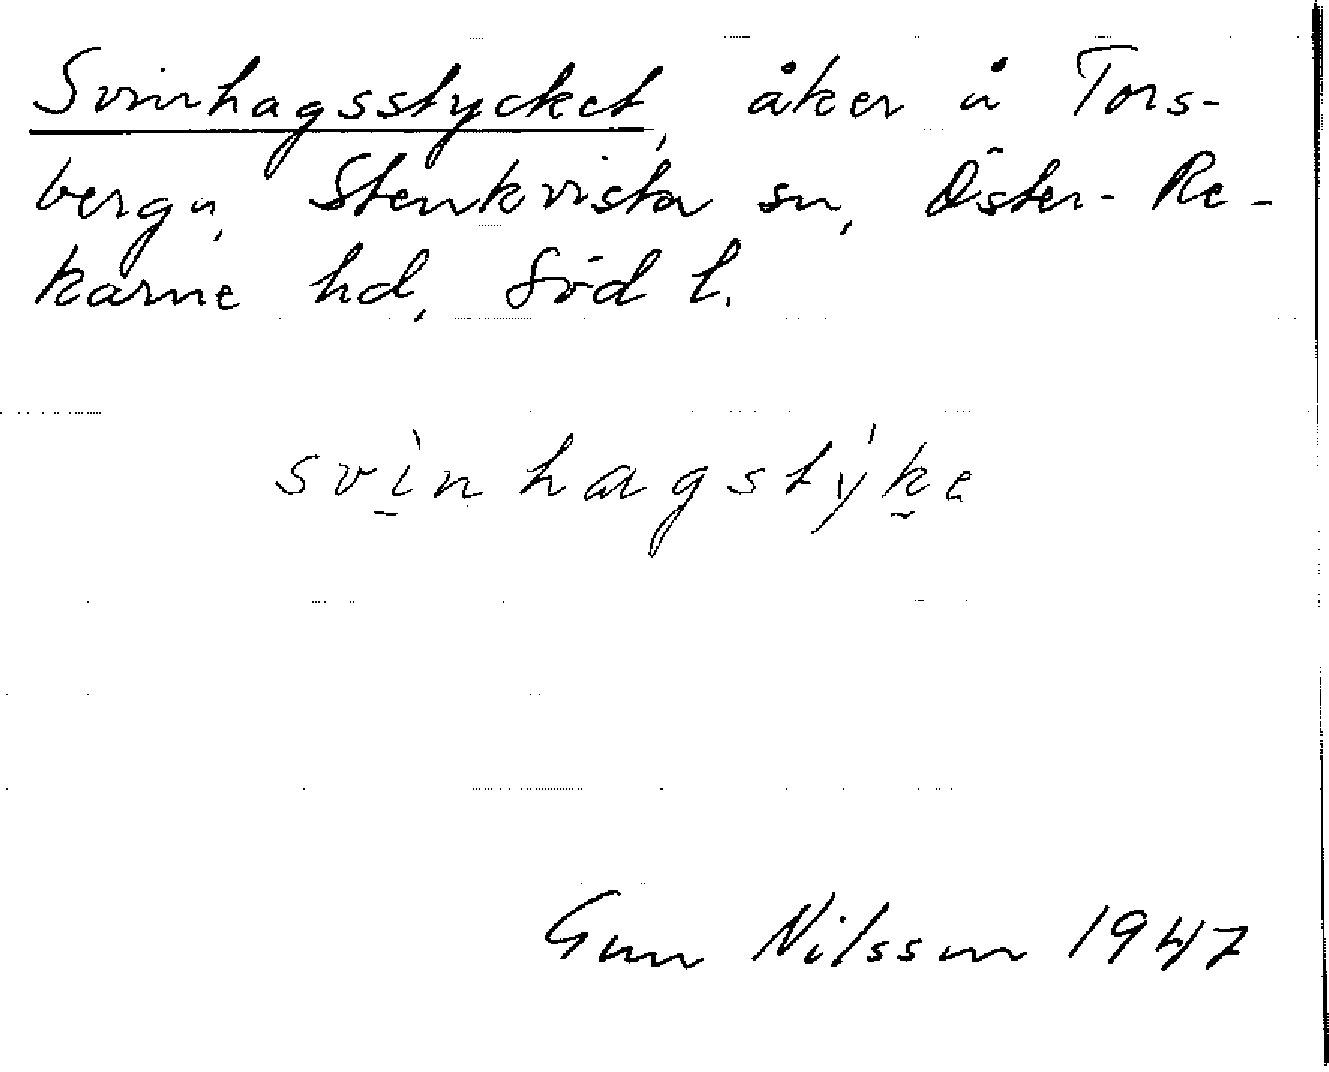 Svinhagsstycket, åker å Tors-
berga, Stenkvista sn, Öster-Re-
karne hd, Söd l.
svì̠nhagstýk̠e
Gun Nilsson 1947